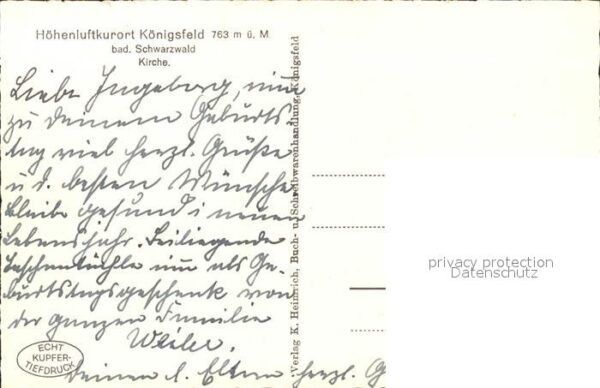 Höhenluftkurort Königsfeld 763 m ü. M.
bad. Schwarzwald
Kirche.
Liebe Ingeborg, nimm
zu Deinem Geburts
tag viel herzl. Grüße
u. d. besten Wünsche
bleibe gesund i neuen
Lebensjahr. Beiliegende
nimm als Ge-
burtstagsgeschenk von
der ganzen Familie
Weiler.
Deinen l. Eltern herzl. G
ECHT
KUPFER-
TIEFDRUCK
Verlag K. Heinrich, Buch- u. Schreibwarenhandlung, Königsfeld
privacy protection
Datenschutz